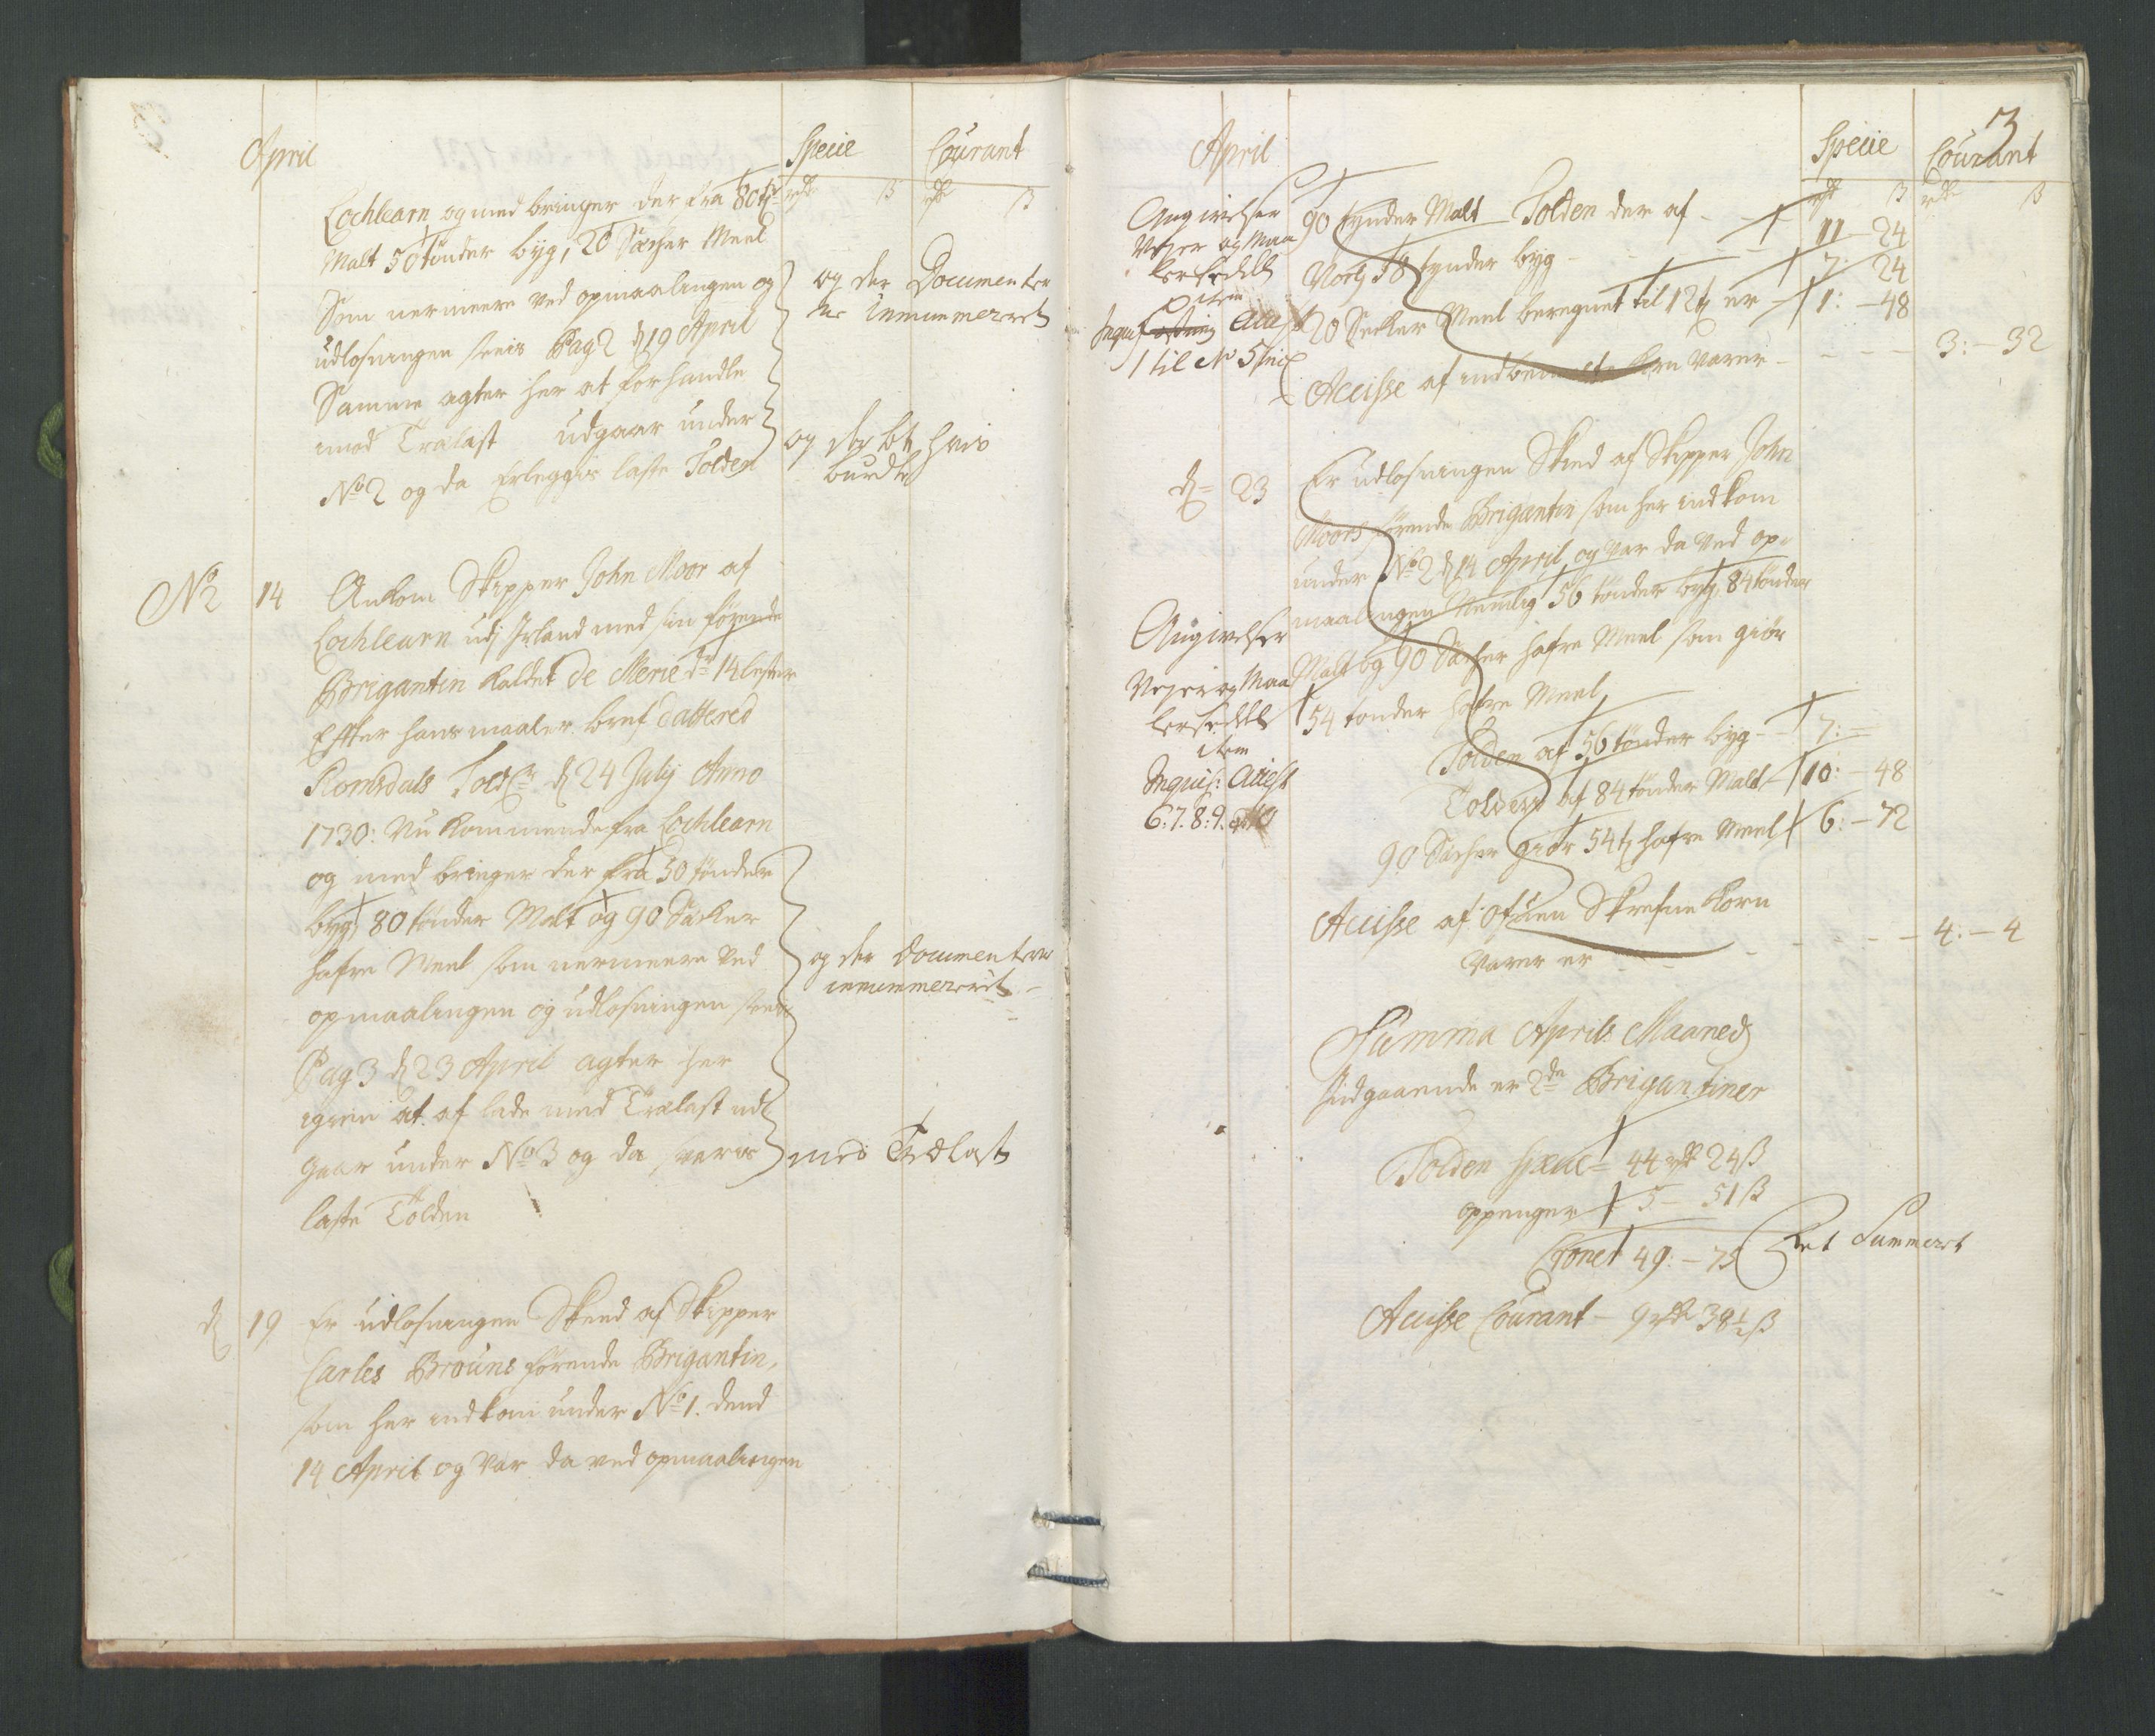 April
Specie
Courant
rdr ß rdr ß
Lochlearn og med bringer der fra 80 tr
Malt 50 tønder byg, 20 Sæcher Meel
Som nermeere ved opmaalingen og
udlosningen sees Pag 2 d 19 April
Samme agter her at forhandle
imod Trælast udgaar under
No 2 og da Erleggis laste Tolden
og der Documenter
ne innummereret
og der bt hvis
burde
No 2
14
Ankom Skipper John Moor af
Lochlearn udj Irland med sin førende
Brigantin kaldet de Merie dr 14 lester
Effter hans maaler bref dattered
Romsdals Told d 24 July Anno
1730: Nu kommende fra Lochlearn
og med bringer der fra 50 tønder
byg, 80 tønder Malt og 90 Sæcker
hafre Meel som nermeere ved
opmaalingen og udlosningen sees
Pag 3 d 23 April agter her
igien at af lade med Trælast ud
gaar under No 3 og da sveris
laste Tolden
og der Documenter
innummereret
med Trælast
d 19
Er udlosningen Skeed af Skipper
Carles Brouns førende Brigantin,
som her indkom under No 1. dend
14 April og var da ved opmaalingen
3
April
Specie
Courant
rdr ß rdr ß
Angivelser
Vejer og Maa
ler sedler
item
Inquis: Attest
1 til No 5
90 tynder Malt Tolden der af - 11 24
Noch 58 tynder byg - 7: 24
20 Secker Meel beregnet til 12 t er - 1: - 48
Accisse af indbemelte korn varer - 3: - 32
d 23
Er udlosningen Skeed af Skipper John
Moors førende Brigantin som her indkom
under No 2 d 14 April og var da ved op=
maalingen Nemlig 56 tønder byg, 84 tønder
Malt og 90 Sæcher hafre Meel som giør
54 tonder hafre Meel
Angivelser
Vejer og Maa
ler sedler
item
Inquis: Attest
6: 7. 8: 9.
Tolden af 56 tønder byg - 7: -
Tolden af 84 tønder Malt - 10: - 48
90 Sæcher giør 54 t hafre Meel 6: - 72
Accisse af ofuen Skrefne korn
varer er - 4: - 4
Summa Aprils Maaneds
Indgaaende er 2de Brigantiner
Tolden specie 44 rdr 24 ß
oppenger 5 - 51 ß
Cronet 49: - 75
Ret Summeret
Accisse Courant - 9 rdr 38 ½ ß